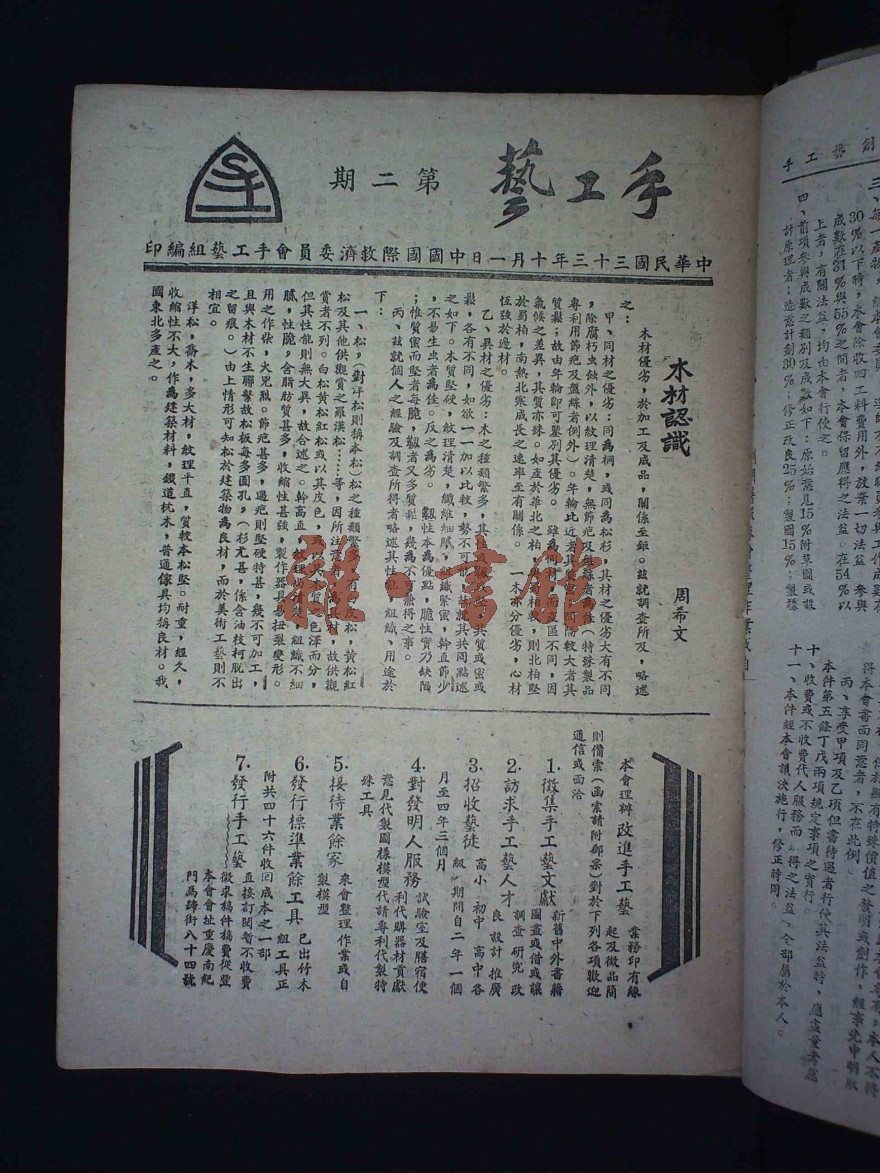 手工藝
第二期
中華民國三十三年十月一日中國國際救濟委員會手工藝組編印
木材認識
周希文
木材優劣,於加工及成品,關係至鉅。茲就調查所及,略述
之:
甲、同材之優劣:同為桐,或同為松杉,其材之優劣大有不同
,除腐朽虫蝕外,以紋理清楚,無節疤及
(特殊製品
專利用節疤及盤絲者倒外)。年輪比近者其質
較大者其
質鬆;故由年輪即可鑒別其優劣。 雖為同材
區不同,因
氣候之差異,其質亦殊。如產於華北之柏
柏較,則北柏堅
於蜀柏,南熱北寒成長之速率至有關係。 一木亦分優劣,心材
恆強於邊材。
乙、異材之優劣:木之種類繁多,其
其質或密或
鬆,各有不同,如欲一一加以比較,勢不可能
茲就其共同點述
之如下。木質堅硬,紋理清楚,纖維細膩,組織緊密,幹直節少
,不易生虫者為佳。反之為劣。 韌性本為優點,脆性實乃缺陷
;惟質密而堅者每脆,韌者又多質鬆,幾為不可兼得之事。
丙、茲就個人之經驗及調查所得者略述其性能,組織、用途於
下:
一、松,(對洋松則稱本松)松之種類繁多,有
皮松,黃松紅
松及其他供觀賞之羅漢松⋯⋯等,因所注意者為
材,故供觀
賞者不列。白松黃松紅松或以其皮色,或以其木質之色澤而分,
但其性能則無大異,故合述之。幹高直,紋理尚清楚,組織不細
膩,性脆,含脂肪質甚多,收縮性甚強,製作器具易扭裂變形。
用之作柴,火兇烈。節疤甚多,遇疤則堅硬特甚,幾不可加工,
且與木材不生聯繫故松板每多圓孔,(杉尤甚,係含油枝柯脫出
之留痕。)由上情形可知松於建築物為良材,而於美術工藝則不
相宜。
洋松,喬木,多大材,紋理平直,質較本松堅。耐重,經久,
收縮性不大,作為建築材料,鐵道枕木,普通傢具均稱良材。我
國東北多產之。
本會理辦改進手工藝 業務印有緣
起及徵品簡
則備索(函索請附郵票)對於下列各項歡迎
通信或面洽
1.徵集手工藝文獻 新舊中外書籍
圖畫或借或讓
2.訪求手工藝人才 調查研究改
良設計推廣
3.招收藝徒 高小初中高中各
級,期間自二年一個
月至四年三個月
4.對發明人服務 試驗室及膳宿便
利代購器材貢獻
意見代製圖樣模型代請專利代製特
殊工具
5.接待業餘家 來會整理作業或自
製模型
6.發行標準業餘工具 已出竹木
組工具正
附共四十六件收回成本之一部
7.發行手工藝 直接訂閱暫不收費
徵求稿件稿費從豐
本會會址重慶南紀
門馬蹄街八十四號
創藝工手
30%以下時,本會除收回工料費用外,放棄一切法益。參與
成數在31%與55%之間者,本會保留應得之法益。在54%以
上者,有關法益,均由本會行使之。
四、前項參與成數之類別及成數如下:原始發見15%附草圖或設
計原理者;造意計劃30%;修正改良25%;製圖15%;製樣
得本會書面同意者,不在此例。
丙、享受甲項及乙項但書待遇者行使其法益時,應盡量考慮
本件第五條丁戊兩項規定事項之實行。
十、收費或不收費代人服務而
得之法益,全部屬於本人。
十一、本件經本會議決施行,修正時同。